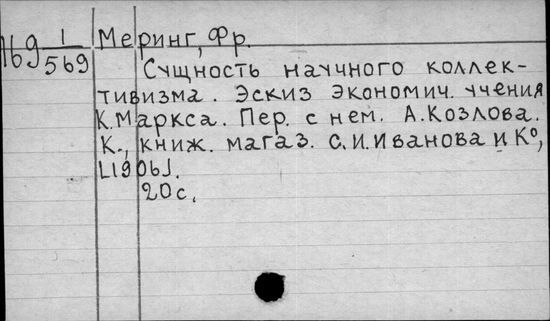 169 1/569
Меринг, Фр.
Сущность научного коллек-
тивизма. Эскиз экономич. учения
К.Маркса. Пер. с нем. А.Козлова.
К., книж. магаз. С.И.Иванова и К°,
[1906].
20с.